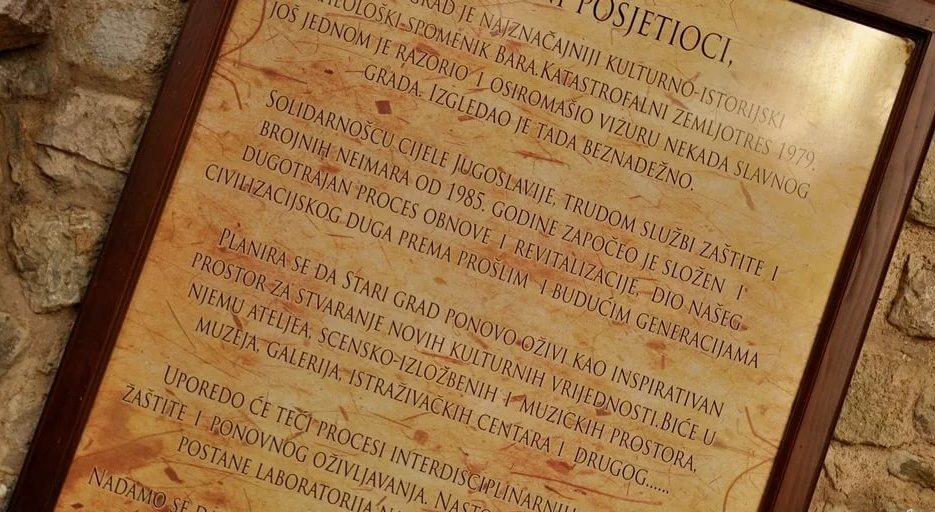 POSJETIOCI,
GRAD JE NAJZNAČAJNIJI KULTURNO-ISTORIJSKI
SPOMENIK BARA.KATASTROFALNI ZEMLJOTRES 1979.
JOŠ JEDNOM JE RAZORIO I OSIROMAŠIO VIZURU NEKADA SLAVNOG
GRADA. IZGLEDAO JE TADA BEZNADEŽNO.
SOLIDARNOŠCU CIJELE JUGOSLAVIJE, TRUDOM SLUŽBI ZAŠTITE I
BROJNIH NEIMARA OD 1985. GODINE ZAPOČEO JE SLOŽEN I
DUGOTRAJAN PROCES OBNOVE I REVITALIZACIJE, DIO NAŠEG
CIVILIZACIJSKOG DUGA PREMA PROŠLIM I BUDUĆIM GENERACIJAMA
PLANIRA SE DA STARI GRAD PONOVO OŽIVI KAO INSPIRATIVAN
PROSTOR ZA STVARANJE NOVIH KULTURNIH VRIJEDNOSTI.BIĆE U
NJEMU ATELJEA, SCENSKO-IZLOŽBENIH I MUZIČKIH PROSTORA,
MUZEJA, GALERIJA, ISTRAŽIVAČKIH CENTARA I DRUGOG......
UPOREDO ĆE TEĆI PROCESI INTERDISCIPLINARNIH
ZAŠTITE I PONOVNOG OŽIVLJAVANJA.
POSTANE LABORATORIJA
NADAMO SE